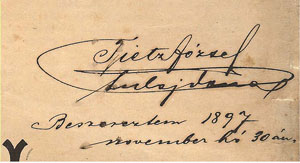 Tietz József
tulajdona
Beszereztem 1897
november hó 30 án.